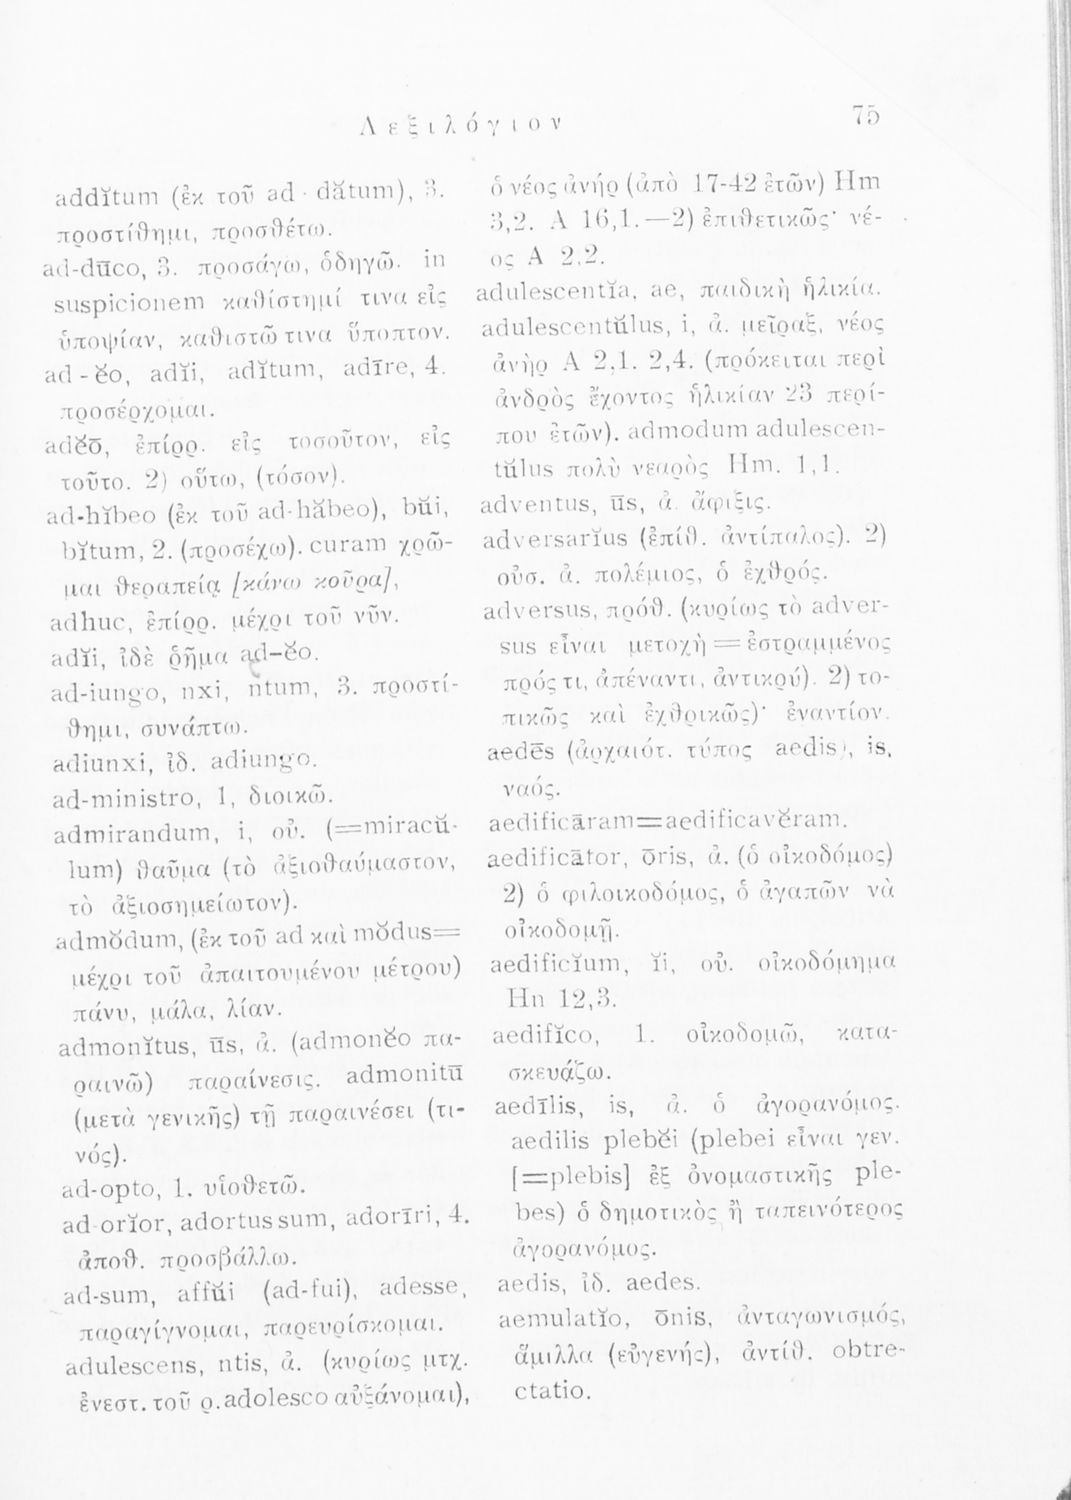 Λεξιλόγιον 75
addĭtum (ἐκ τοῦ ad - dătum), 3.
προστίθημι, προσθέτω.
ad-dūco, 3. προσάγω, ὁδηγῶ. in
suspicionem καθίστημί τινα εἰς
ὑποψίαν, καθιστῶ τινα ὕποπτον.
ad - ĕo, adĭi, adĭtum, adīre, 4.
προσέρχομαι.
adĕō, ἐπίρρ. εἰς τοσοῦτον, εἰς
τοῦτο. 2) οὕτω, (τόσον).
ad-hĭbeo (ἐκ τοῦ ad-hăbeo), bŭi,
bĭtum, 2. (προσέχω). curam χρῶ-
μαι θεραπείᾳ [κάνω κούρα],
adhuc, ἐπίρρ. μέχρι τοῦ νῦν.
adĭi, ἰδὲ ῥῆμα ad-ĕo.
ad-iungo, nxi, ntum, 3. προστί-
θημι, συνάπτω.
adiunxi, ἰδ. adiungo.
ad-ministro, 1, διοικῶ.
admirandum, i, οὐ. (=miracŭ-
lum) θαῦμα (τὸ ἀξιοθαύμαστον,
τὸ ἀξιοσημείωτον).
admŏdum, (ἐκ τοῦ ad καὶ mŏdus=
μέχρι τοῦ ἀπαιτουμένου μέτρου)
πάνυ, μάλα, λίαν.
admonĭtus, ūs, ἀ. (admonĕo πα-
ραινῶ) παραίνεσις. admonitū
(μετὰ γενικῆς) τῇ παραινέσει (τι-
νός).
ad-opto, 1. υἱοθετῶ.
ad orĭor, adortus sum, adorīri, 4.
ἀποθ. προσβάλλω.
ad-sum, affŭi (ad-fui), adesse,
παραγίγνομαι, παρευρίσκομαι.
adulescens, ntis, ἀ. (κυρίως μτχ.
ἐνεστ. τοῦ ρ. adolesco αὐξάνομαι),
ὁ νέος ἀνήρ (ἀπὸ 17-42 ἐτῶν) Hm
3,2. A 16,1.—2) ἐπιθετικῶς· νέ-
ος A 2,2.
adulescentĭa, ae, παιδικὴ ἡλικία.
adulescentŭlus, i, ἀ. μεῖραξ, νέος
ἀνὴρ A 2,1. 2,4. (πρόκειται περὶ
ἀνδρὸς ἔχοντος ἡλικίαν 23 περί-
που ἐτῶν). admodum adulescen-
tŭlus πολὺ νεαρὸς Hm. 1,1.
adventus, ūs, ἀ. ἄφιξις.
adversarĭus (ἐπίθ. ἀντίπαλος). 2)
οὐσ. ἀ. πολέμιος, ὁ ἐχθρός.
adversus, πρόθ. (κυρίως τὸ adver-
sus εἶναι μετοχὴ=ἐστραμμένος
πρός τι, ἀπέναντι, ἀντικρύ). 2) το-
πικῶς καὶ ἐχθρικῶς)· ἐναντίον.
aedēs (ἀρχαιότ. τύπος aedis), is,
ναός.
aedificāram=aedificavĕram.
aedificātor, ōris, ἀ. (ὁ οἰκοδόμος)
2) ὁ φιλοικοδόμος, ὁ ἀγαπῶν νὰ
οἰκοδομῇ.
aedificĭum, ĭi, οὐ. οἰκοδόμημα
Hn 12,3.
aedifĭco, 1. οἰκοδομῶ, κατα-
σκευάζω.
aedīlis, is, ἀ. ὁ ἀγορανόμος.
aedilis plebĕi (plebei εἶναι γεν.
[=plebis] ἐξ ὀνομαστικῆς ple-
bes) ὁ δημοτικὸς ἢ ταπεινότερος
ἀγορανόμος.
aedis, ἰδ. aedes.
aemulatĭo, ōnis, ἀνταγωνισμός,
ἅμιλλα (εὐγενής), ἀντίθ. obtre-
ctatio.